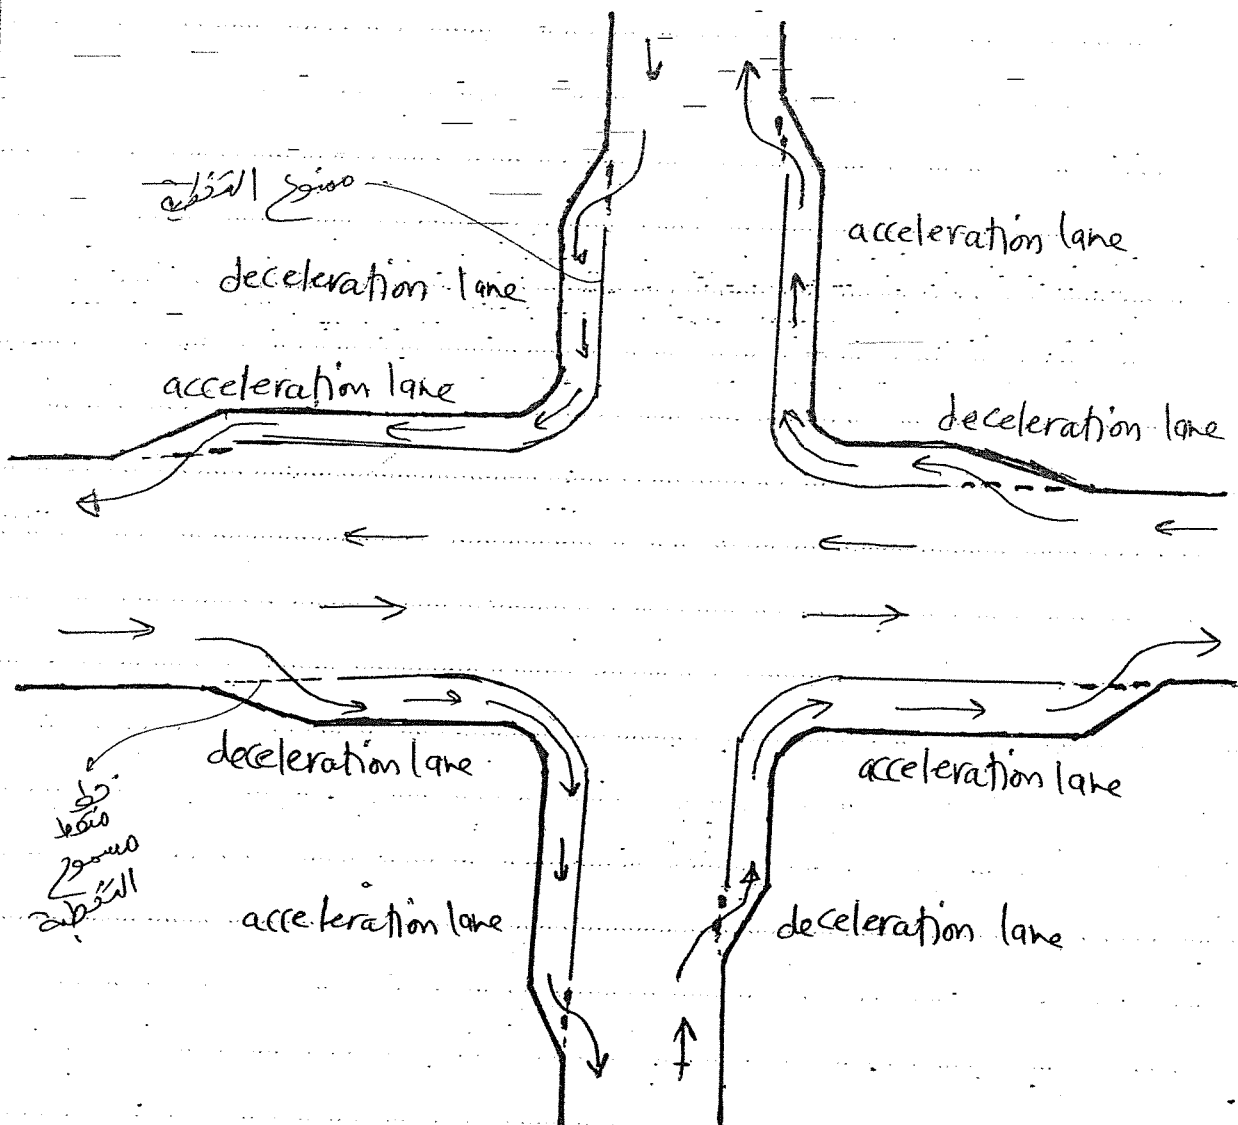 ممنوع التخطية
acceleration lane
deceleration lane
acceleration lane
deceleration lane
deceleration lane
acceleration lane
خط
منقط
مسموح
التخطية
acceleration lane
deceleration lane